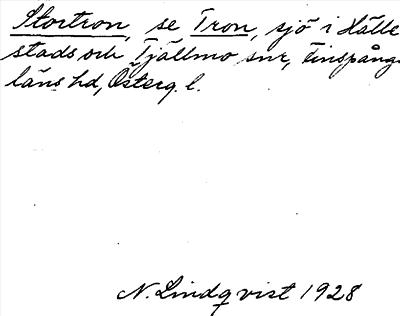 Stortron, se Tron, sjö i Hälle
stads och Tjällmo snr, Finspånga
läns hd, Österg. l.
N. Lindqvist 1928